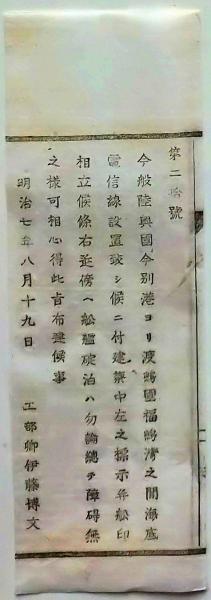 第二拾號
今般陸奥國今別港ヨリ渡嶋國福嶋灣之間海底
電信線設置致シ候ニ付建築中左之標示幷舩印
相立候條右近傍ヘ舩艦碇泊ハ勿論總テ障碍無
之様可相心得此旨布達候事
明治七年八月十九日
工部卿伊藤博文